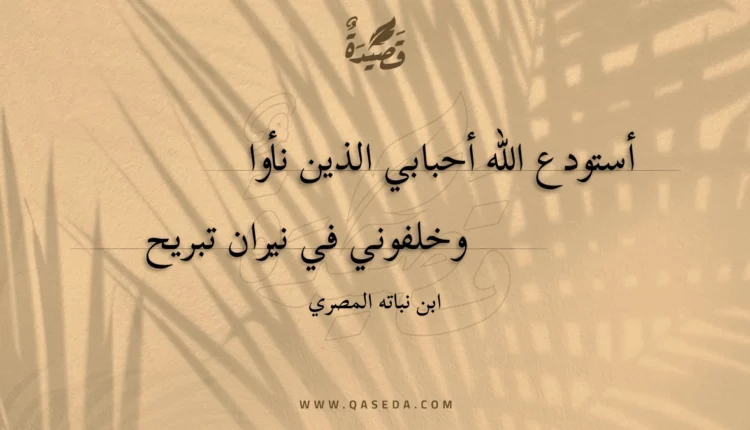 قَصِيْدَةٌ
أستودع الله أحبابي الذين نأوا
وخلفوني في نيران تبريح
ابن نباته المصري
WWW.QASEDA.COM